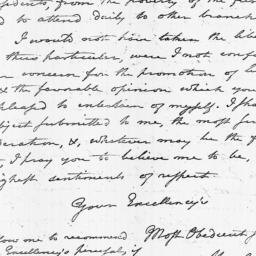 from the poverty of the
d to attend daily to other branch
I would not have taken the lib
this particular, were I not conf
concern for the promotion of
& the favorable opinion which you
pleased to entertain of myself. I sha
bject submitted to me, the most
eration, &, whatever may be the
, I pray you to believe me to be,
ighest sentiments of respect.
Your Excellency's
low me to recommend Most Obedient
Excellency's perusal, if